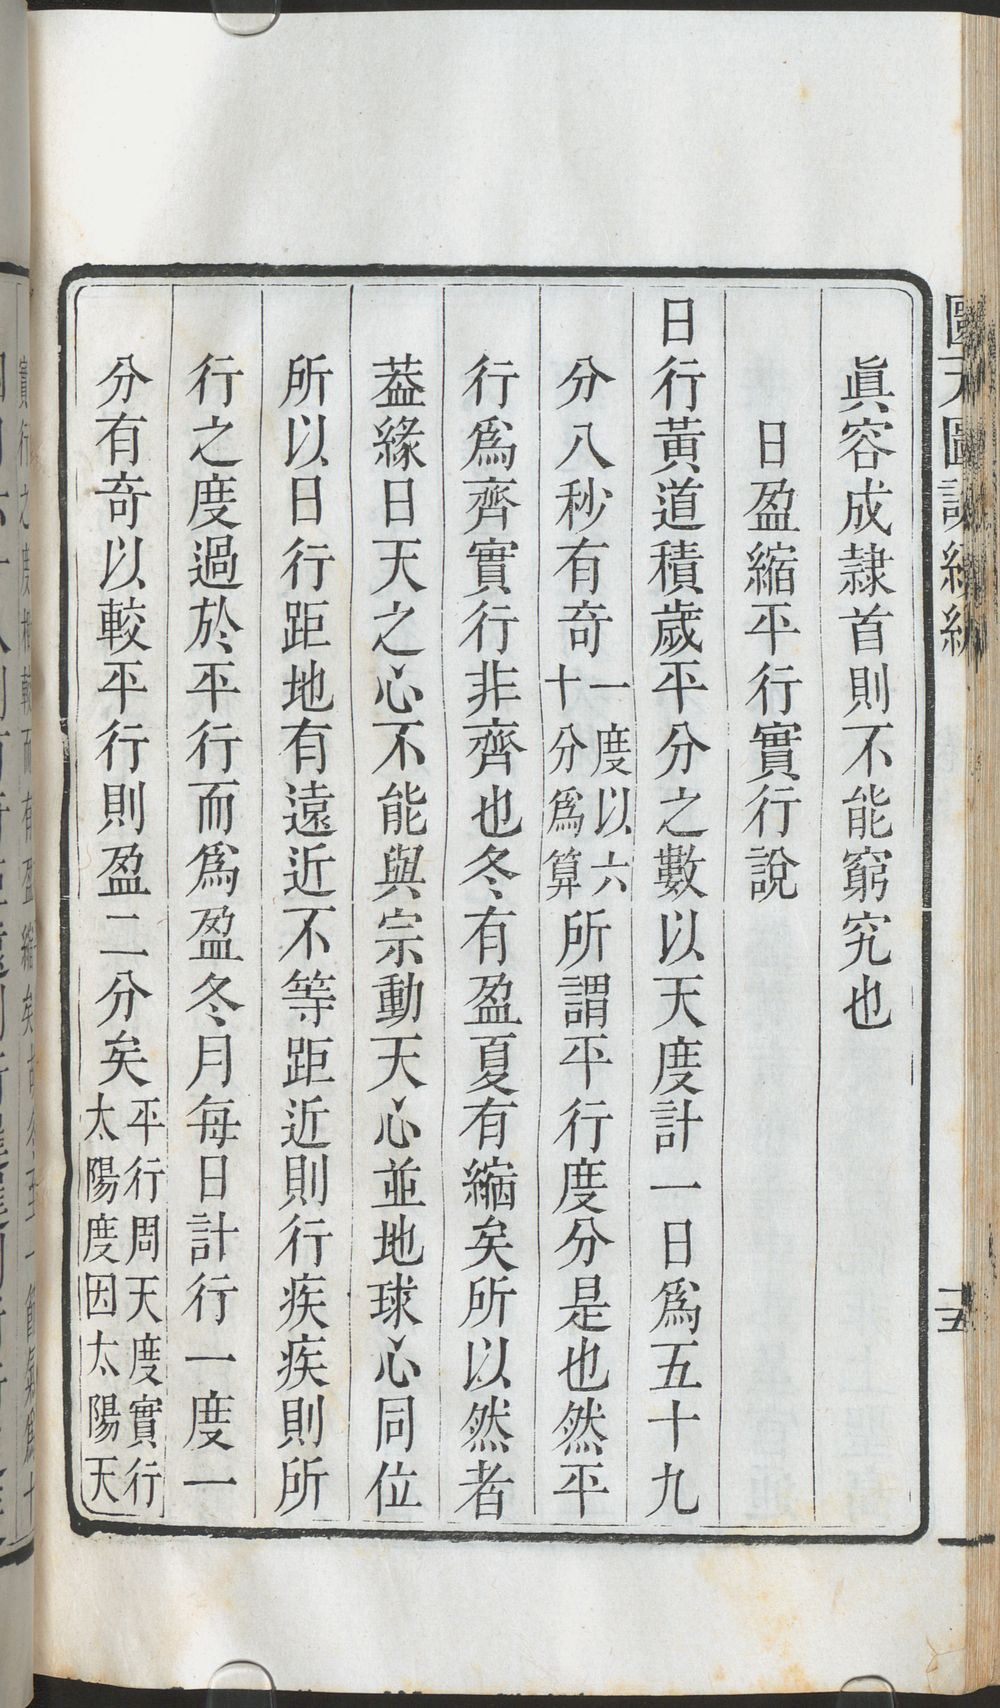 眞容成隷首則不能窮究也
日盈縮平行實行說
日行黃道積歲平分之數以天度計一日爲五十九
分八秒有奇一度以六十分爲算所謂平行度分是也然平
行爲齊實行非齊也冬有盈夏有縮矣所以然者
葢緣日天之心不能與宗動天心並地球心同位
所以日行距地有遠近不等距近則行疾疾則所
行之度過於平行而爲盈冬月每日計行一度一
分有奇以較平行則盈二分矣平行周天度實行太陽度因太陽天